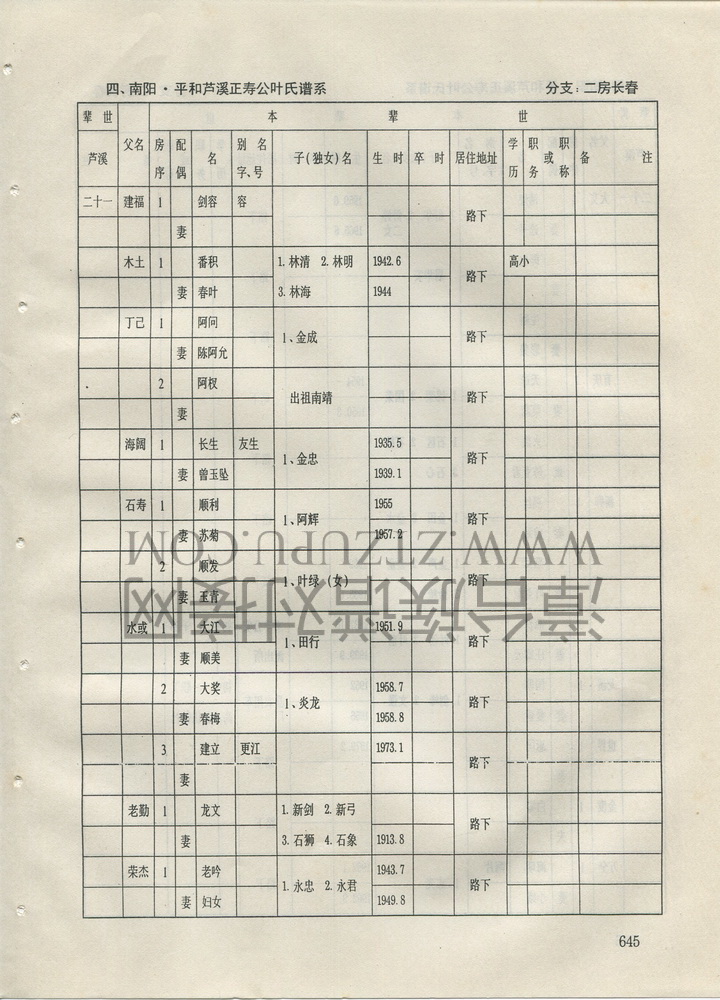 四、南阳·平和芦溪正寿公叶氏谱系 分支：二房长春
辈世 本辈世
芦溪 父名 房序 配偶 名 别名字、号 子(独女)名 生时 卒时 居住地址 学历 职务或职称 备注
二十一 建福 1 剑容 容 路下
妻
木土 1 番积 1.林清 2.林明 1942.6 路下 高小
妻 春叶 3.林海 1944
丁己 1 阿问 1、金成 路下
妻 陈阿允
2 阿杈 出祖南靖 路下
妻
海阔 1 长生 友生 1、金忠 1935.5 路下
妻 曾玉坠 1939.1
石寿 1 顺利 1、阿辉 1955 路下
妻 苏菊 1957.2
2 顺发 1、叶绿（女） 路下
妻 玉青
水或 1 大江 1、田行 1951.9 路下
妻 顺美
2 大奖 1、炎龙 1958.7 路下
妻 春梅 1958.8
3 建立 更江 1973.1 路下
妻
老勤 1 龙文 1.新剑 2.新弓 路下
妻 3.石狮 4.石象 1913.8
荣杰 1 老吟 1、永忠 2、永君 1943.7 路下
妻 妇女 1949.8
645
漳台族谱对接网
WWW.ZTZUPU.COM